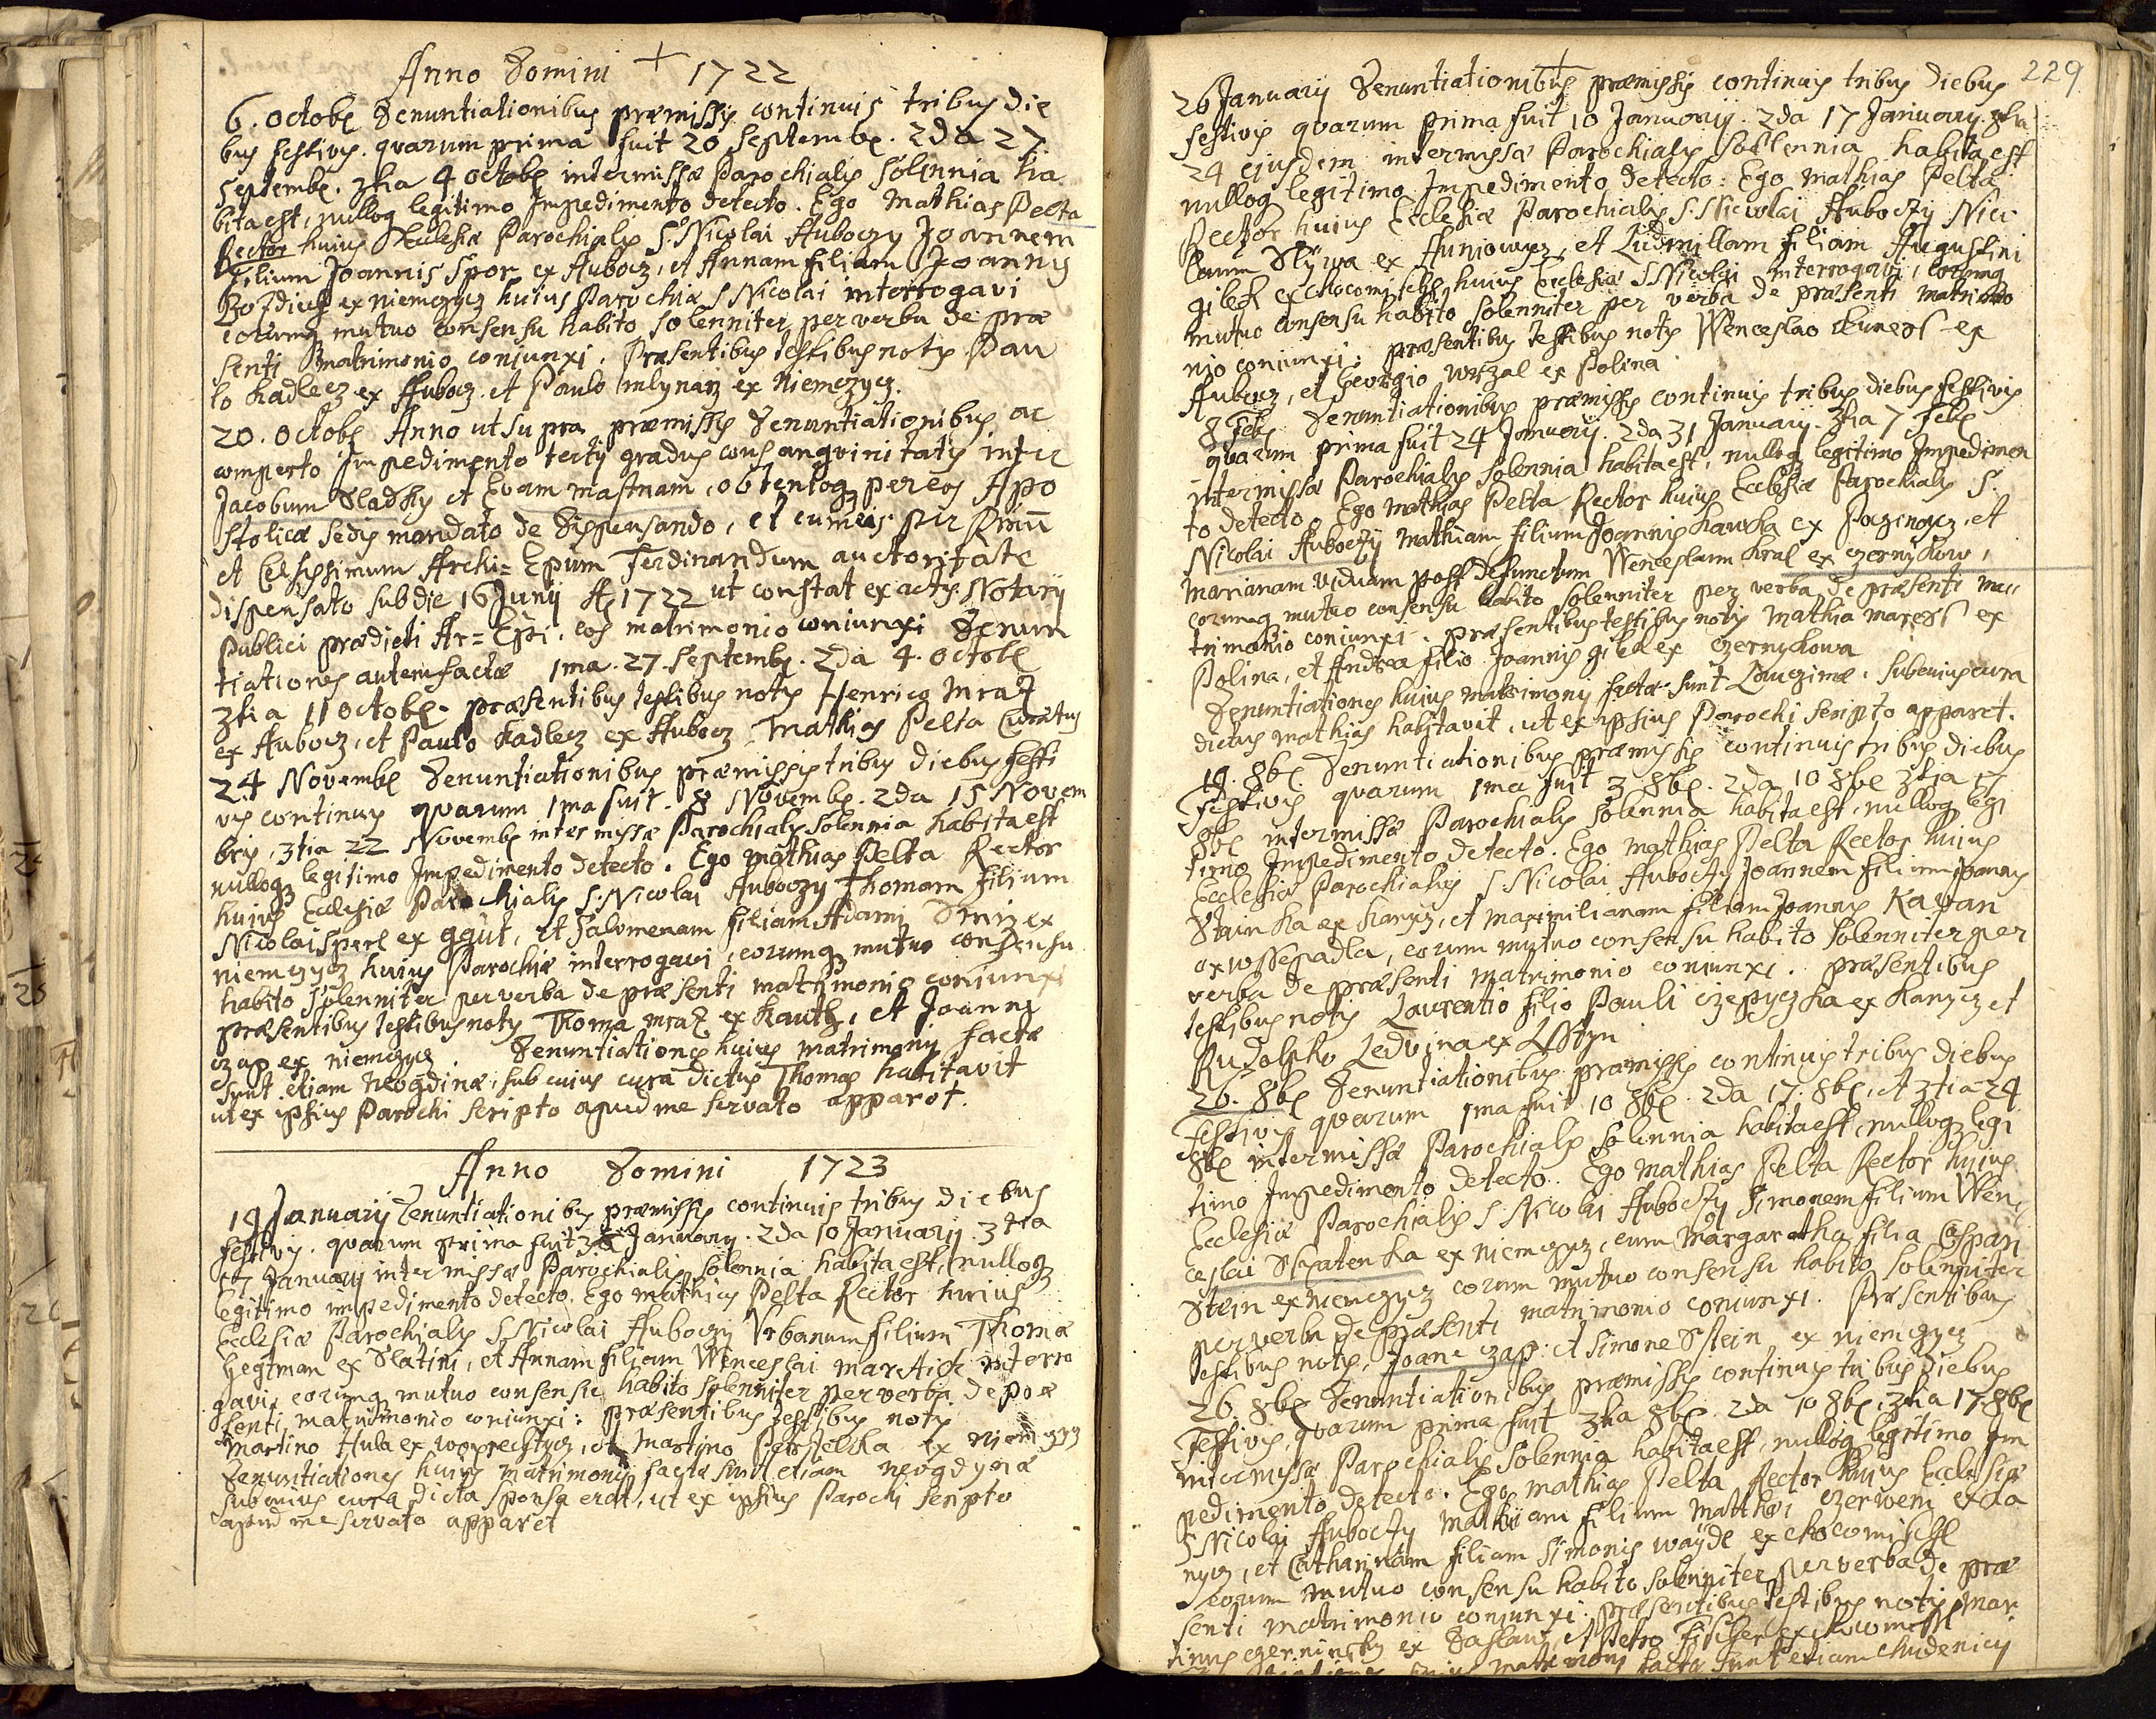 Anno Domini + 1722
6. Octobr Denuntiationibus præmissis continuis tribus die
bus festivis. quarum prima fuit 20 Septembr. 2da 27.
Septembr. 3tia 4 Octobr intermissæ Parochialis Solennia ha
bita est, nulloq legitimo Impedimento detecto. Ego Mathias Pelta
Rector huius Ecclesiæ Parochialis S. Nicolai Auboczy Joannem
Filium Joannis Spor ex Auborz, et Annam filiam Joannis
ex Niemczycz huius Parochiæ S Nicolai interrogavi
eorumq mutuo consensu habito solenniter per verba de præ
senti Matrimonio conjunxi. Præsentibus testibus notis Pau
lo Kadlecz ex Aubocz. et Paulo mlynarz ex Niemczycz.
20. Octobr Anno ut supra præmissis Denuntiationibus ac
comperto Impedimento tertij gradus consangvinitatis inter
Jacobum Sladky et Evam mastnam, obtentoq per eos Apo
stolicæ Sedis mandato de dispensando, et cum eis per
et Celsissimum Archi= Epum Ferdinandum auctoritate
dispensato sub die 16 Junij A 1722 ut constat ex actis Notarij
Publici prædicti Ar= Epi. eos matrimonio coniunxi Denun
tiationes autem factæ 1ma. 27. Septembr. 2da 4. Octobr
3tia 11 Octobr. præsentibus testibus notis Henrico Mraz
ex Aubocz, et Paulo Kadlecz ex Aubocz. Mathias Pelta Curatus
24 Novembr Denuntiationibus præmissis tribus diebus festi
vis continuis quarum 1ma fuit. 8 Novembr. 2da 15 Novem
bris, 3tia 22 Novembr intermissæ Parochialis Solennia habita est
nulloq legitimo Impedimento detecto. Ego Mathias Pelta Rector
huius Ecclesiæ Parochialis S: Nicolai Auboczy Thomam filium
Nicolai Sperl ex ggut, et Salomenam filiam Adami ex
niemczycz huius Parochiæ interrogavi, eorumq mutuo consensu
habito solenniter per verba de præsenti matrimonio coniunxi
præsentibus testibus notis Thoma mraz ex Kauth, et Joanne
czap ex niemczycz. Denuntiationes huius matrimonij factæ
sunt etiam neogdinæ, sub cuius cura dictus Thomas habitavit
ut ex ipsius Parochi scripto apud me servato apparet.
Anno Domini 1723
19 Januarij Denuntiationibus præmissis continuis tribus diebus
festivis. quarum prima fuit 3 Januarij. 2da 10 Januarij. 3tia
17 Januarij intermissæ Parochialis Solennia habita est, nulloq
legitimo impedimento detecto. Ego Mathias Pelta Rector huius
Ecclesiæ Parochialis S. Nicolai Auboczy Urbanum filium Thomæ
Hegtman ex Slatini, et Annam filiam Wenceslai interro
gavi, eorumq mutuo consensu habito solenniter per verba de præ
senti matrimonio coniunxi: præsentibus testibus notis
Martino Hula ex woprechtycz, et Martino ex niemczycz
Denuntiationes huius matrimonij factæ sunt etiam neogdynæ
sub cuius cura dicta sponsa erat, ut ex ipsius Parochi scripto
apud me servato apparet
229
26 Januarij Denuntiationibus præmissis continuis tribus diebus
festivis quarum prima fuit 10 Januarij. 2da 17 Januarij. 3tia
24 ejusdem intermissæ Parochialis Solennia habita est
nulloq legitimo Impedimento detecto: Ego Mathias Pelta
Rector huius Ecclesiæ Parochialis S. Nicolai Auboczy Nico
laum Slywa ex Huniowycz, et Ludmillam filiam Augustini
gilek ex chocomischl, huius Ecclesiæ S Nicolai interrogavi, eorumq
mutuo consensu habito solenniter per verba de præsenti matrimo
nio coniunxi: præsentibus testibus notis Wenceslao Kuness ex
Aubocz, et Georgio wrzal ex Polina
8 Febr Denuntiationibus præmissis continuis tribus diebus festivis
quarum prima fuit 24 Januarij. 2da 31 Januarij. 3tia 7 Febr
intermissæ Parochialis Solennia habita est, nulloq legitimo Impedimen
to detecto. Ego mathias Pelta Rector huius Ecclesiæ Parochialis S.
Nicolai Auboczy Mathiam filium Joannis Kawka ex, et
Marianam viduam post defunctum Wenceslaum Kral ex czernikow,
eorumq mutuo consensu habito solenniter per verba de præsenti ma
trimonio coniunxi. præsentibus testibus notis Mathia maress ex
Polina, et Andrea filio Joannis gilek ex czernikowa
Denuntiationes huius matrimonij factæ sunt Lauzimæ. sub cuius cura
dictus Mathias habitavit, ut ex ipsius Parochi scripto apparet.
19. 8br Denuntiationibus præmissis continuis tribus diebus
Festivis quarum 1ma fuit 3 8br. 2da 10 8br 3tia 17
8br intermissæ Parochialis Solennia habita est, nulloq legi
timo Impedimento detecto. Ego Mathias Pelta Rector huius
Ecclesiæ Parochialis S. Nicolai Auboczy Joannem filium Joannis
Stainka ex Kanycz, et Maximilianam filiam Joannis Kawan
ex wssepadla, eorum mutuo consensu habito solenniter per
verba de præsenti matrimonio coniunxi. præsentibus
testibus notis Laurentio filio Pauli czepyczka ex Kanycz et
Rudolpho Ledvina ex Usstyn
26. 8br Denuntiationibus præmissis continuis tribus diebus
Festivis quarum 1ma fuit 10 8br. 2da 17. 8br, et 3tia 24
8br intermissæ Parochialis Solennia habita est, nulloq legi
timo Impedimento detecto. Ego Mathias Pelta Rector huius
Ecclesiæ Parochialis S. Nicolai Auboczy Simonem filium Wen
ceslai Skatenka ex niemczycz, cum Margaretha filia Caspari
Stein ex niemczycz eorum mutuo consensu habito solenniter
per verba de præsenti matrimonio coniunxi. Præsentibus
testibus notis, Joane czap. et Simone Stein ex niemczycz
26. 8br Denuntiationibus præmissis continuis tribus diebus
Festivis, quarum prima fuit 3tia 8br. 2da 10 8br, 3tia 17. 8br
intermissæ Parochialis Solennia habita est, nulloq legitimo Im
pedimento detecto. Ego Mathias Pelta Rector huius Ecclesiæ
S Nicolai Auboczy Mathiam filium Matthæi czerweni ex Ka
nycz, et Catharinam filiam Simonis wayde ex chocomischl
eorum mutuo consensu habito solenniter per verba de præ
senti Matrimonio coniunxi. præsentibus testibus notis Mar
tinus czerninsky ex Saslaw, et Petro Fischer ex chocomischl
huius matrimonij factæ sunt etiam chudenicij